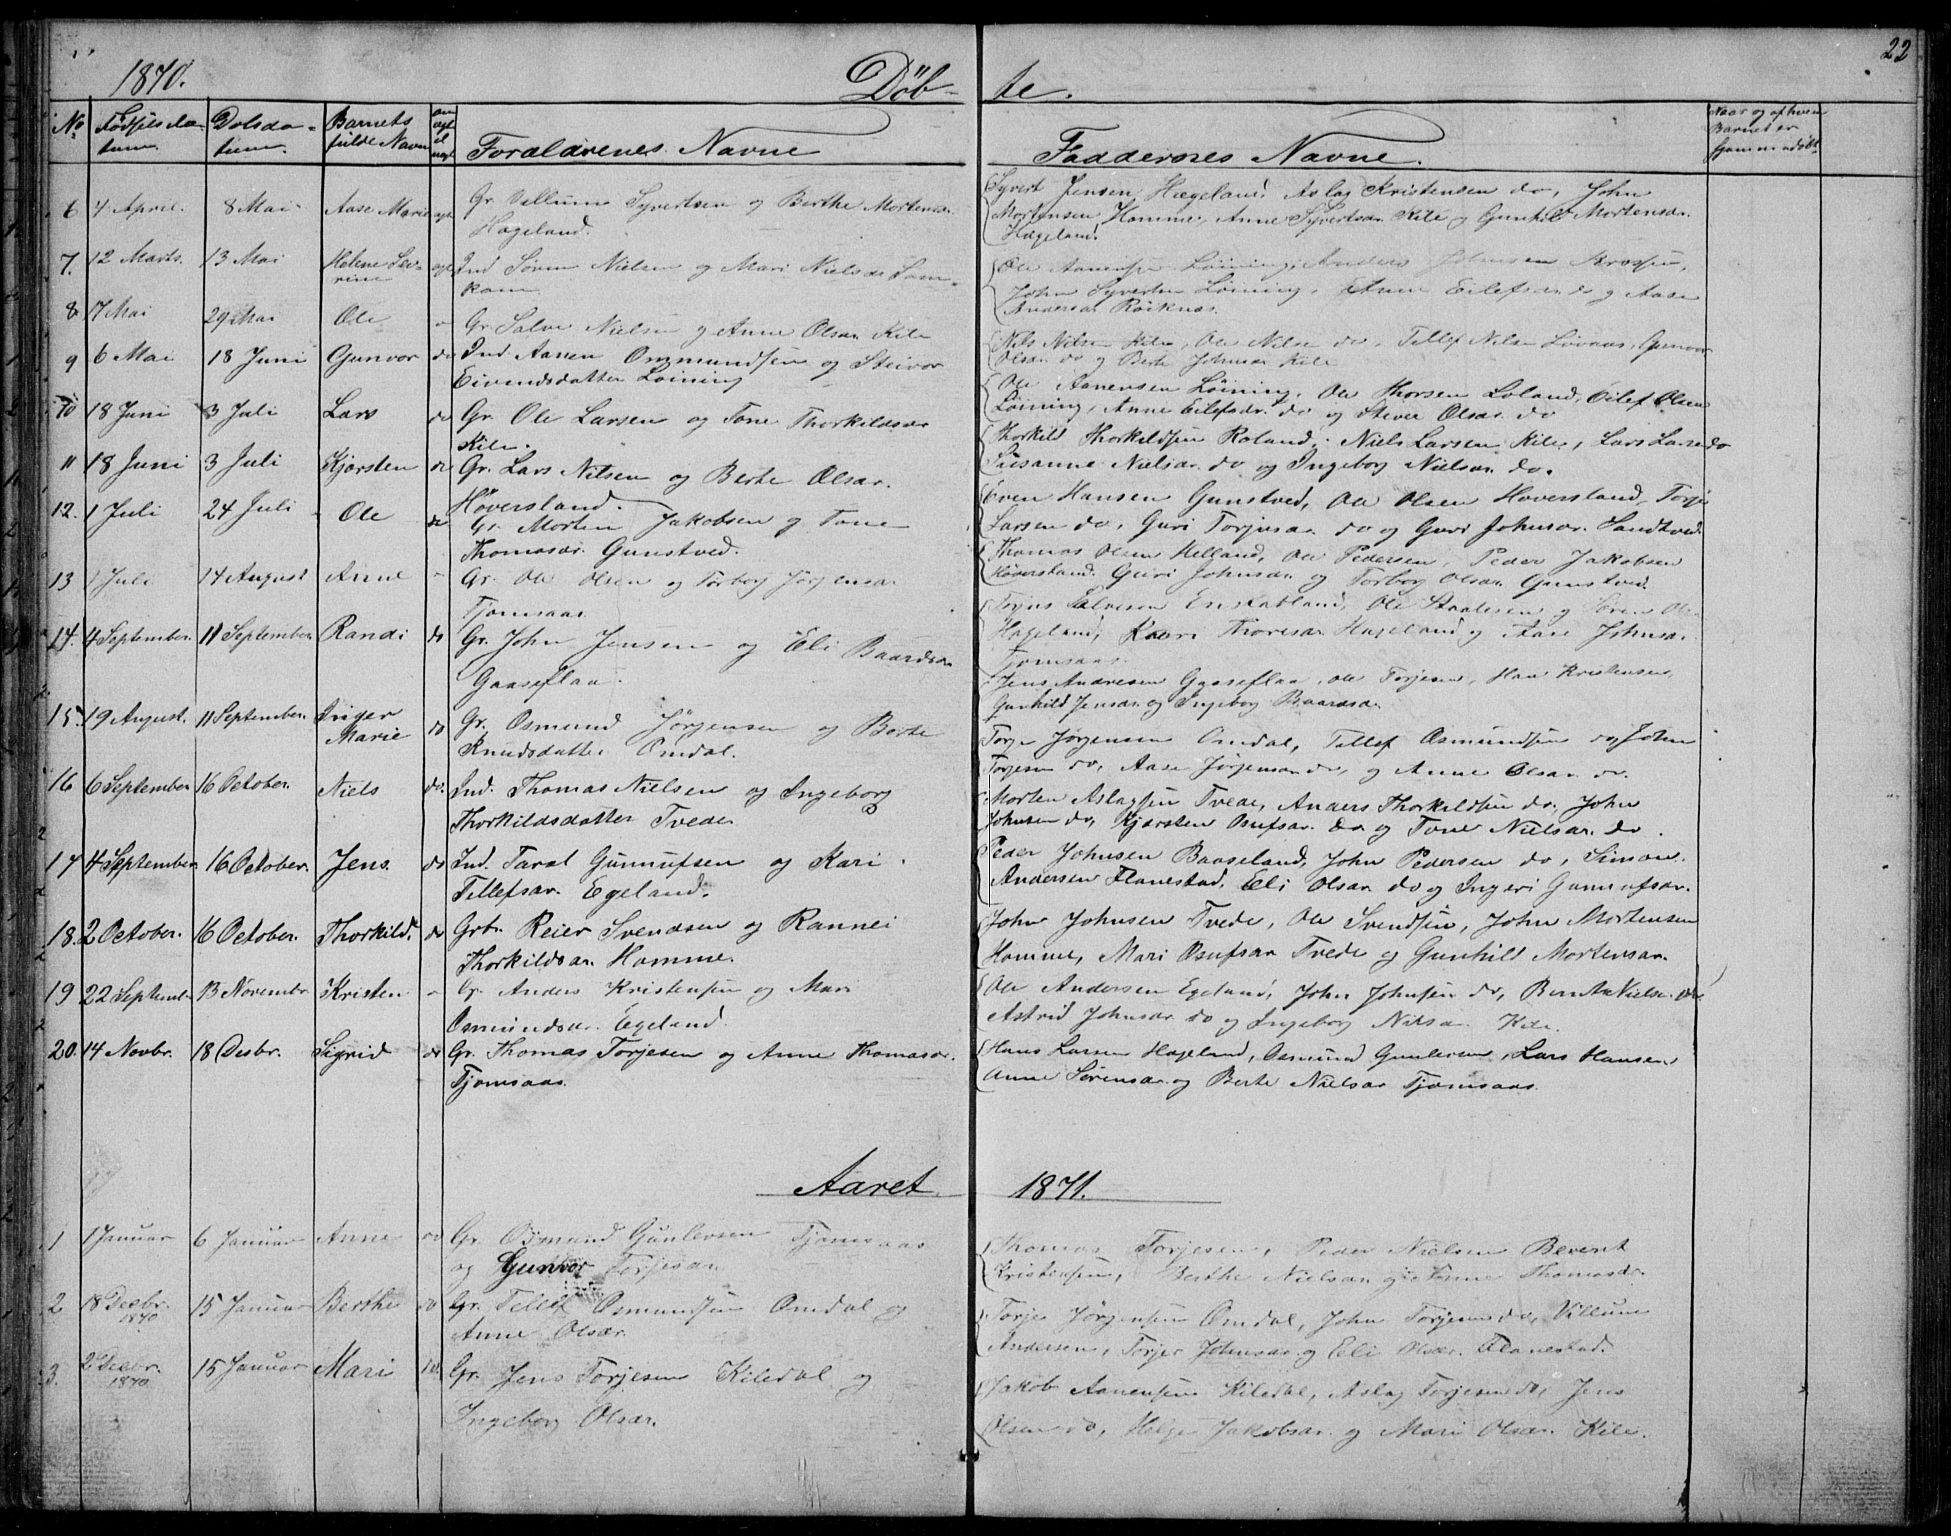 22
1870. Döbte.
No Födselsdatum. Daabsdatum. Barnets fulde Navn Forældrenes Navne
Faddernes Navne. Naar og af hvem Barnet er hjemmedøbt
6 4 April. 8 Mai Aase Marie ægte Gr. Villum Syvertsen og Berthe Mortensdr.
Hægeland.
Syvert Jensen Hægeland, Aslag Kristensen do, John
Mortensen Homme, Anne Syvertsdr. Kile og Gunhild Mortensdr.
Hægeland.
7. 12 Marts. 13 Mai Helene Severine ægte Ind. Sören Nielsen og Mari Nielsdr
Ole Aanensen Löining, Anders Johnsen
John Syvertsen Löining, Anne Eilefsdr. do og Aase
Andersdr. Röiknes.
8. 7 Mai 29 Mai Ole Gr. Salve Nielsen og Anne Olsdr. Kile
Nils Nilsen Kile, Ole Nilsen do, Tellef Nilsen Livaas, Gunvor
Olsdr. do og Berte Johnsdr. Kile
9 6 Mai 18 Juni Gunvor do Ind. Aanen Ommundsen og Steivor
Eivindsdatter Löining
Ole Aanensen Löining, Ole Thorsen Loland, Eilef Olsen
Löining, Anne Eilefsdr. do og Stever Olsdr. do
10 18 Juni 3 Juli Lars do Gr. Ole Larsen og Tone Thorkildsdr
Kile.
Thorkild Thorkildsen Roland, Niels Larsen Kile, Lars Larsen do
Susanne Nielsdr. do og Ingeborg Nielsdr. do.
11 18 Juni 3 Juli Kjersten do Gr. Lars Nilsen og Berte Olsdr.
Höversland.
Even Hansen Gunstved, Ole Olsen Hoversland, Torje
Larsen do, Guri Torjusdr. do og Guri Johnsdr. Sandtved.
12. 1 Juli 24 Juli Ole do Gr. Morten Jakobsen og Tone
Thomasdr. Gunstved.
Thomas Olsen Helland, Ole Pedersen, Peder Jakobsen
Höversland, Guri Johnsdr. og Torborg Olsdr. Gunstved.
13 1 Juli 14 August Anne Gr. Ole Olsen og Torborg Jörgensdr.
Tjomsaas.
Torjus Salvesen Eriksbland, Ole Staalesen og Sören
Hægeland, Kari Thoresdr. Hægeland og Aase Johnsdr.
Tjomsaas.
14. 4 September. 11 September. Randi do Gr. John Jensen og Eli Baardsdr.
Gaaseflaa.
Jens Andresen Gaaseflaa, Ole Torjesen, Hans Kristensen,
Gunhild Jensdr. og Ingeborg Baardsdr.
15. 19 August. 11 September. Inger Marie do Gr. Osmund Jörgensen og Berte
Knudsdatter Omdal.
Torje Jörgensen Omdal, Tellef Osmundsen do, John
Torjesen do, Aase Jörgensdr. do, og Anne Olsdr. do.
16 6 September 16 October. Niels do. Ind. Thomas Nielsen og Ingeborg
Thorkildsdatter Tvede
Morten Aslagsen Tvede, Anders Thorkildsen do, John
Johnsen do, Kjersten Osufsdr. do og Tone Nielsdr. do.
17 4 September 16 October. Jens. do Ind. Taral Gunnufsen og Kari
Tellefsdr. Egeland.
Peder Johnsen Baaseland, John Pedersen do, Simon
Andersen Flanestad, Eli Olsdr. do og Ingeri Gunnufsdr.
18. 2 October. 16 October. Thorkild. do Grbr. Reier Svendsen og Rannei
Thorkildsdr. Homme.
John Johnsen Tvede, Ole Svendsen, John Mortensen
Homme, Mari Osufsdr Tvede og Gunhild Mortensdr.
19 22 Septembr. 13 Novembr Kristen Gr. Anders Kristensen og Mari
Osmundsdr. Egeland.
Ole Andersen Egeland, John Johnsen do, Bernt Nielsen do
Astrid Johnsdr. do og Ingeborg Nilsdr. Kile.
20. 14 Novbr. 18 Desbr. Sigrid do Gr. Thomas Torjesen og Anne Thomasdr.
Tjomsaas.
Hans Larsen Hægeland, Osmund Gunlevsen, Lars Hansen,
Anne Sörensdr. og Berte Nielsdr Tjomsaas.
Aaret 1871.
1 1 Januar 6 Januar Anne do Gr. Osmund Gunlevsen Tjomsaas
og Gunvor Torjesdr.
Thomas Torjesen, Peder Nielsen Berent
Kristensen, Berthe Nielsdr. og Anne Thomasdr.
2 18 Decbr. 1870 15 Januar Berthe do Gr. Tellef Osmundsen Omdal og
Anne Olsdr.
Torje Jörgensen Omdal, John Torjesen do, Villum
Andersen, Torjer Johnsdr. og Eli Olsdr. Flanestad.
3. 2 Decbr. 1870 15 Januar Mari do. Gr. Jens Torjesen Kiledal og
Ingeborg Olsdr.
Jakob Aanensen Kiledal, Aslag Torjesen do, Jens
Olsen do, Helge Jakobsdr. og Mari Olsdr. Kile.